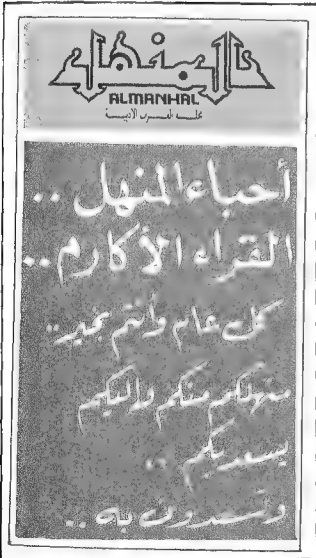 المنهل
ALMANHAL
مجلة العرب الأدبية
أحباء المنهل ..
القراء الأكارم ..
كل عام وأنتم بخير ..
منهلكم منكم وإليكم
يسعد بكم ..
وتسعدون به ..